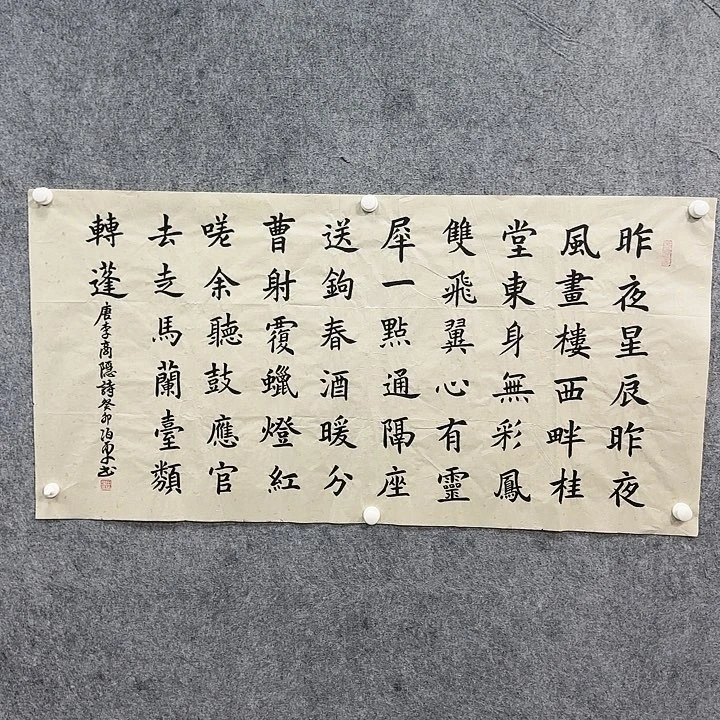 昨夜星辰昨夜
風畫樓西畔桂
堂東身無彩鳳
雙飛翼心有靈
犀一點通隔座
送鉤春酒暖分
曹射覆蠟燈紅
嗟余聽鼓應官
去走馬蘭臺類
轉蓬
唐李商隱詩癸卯